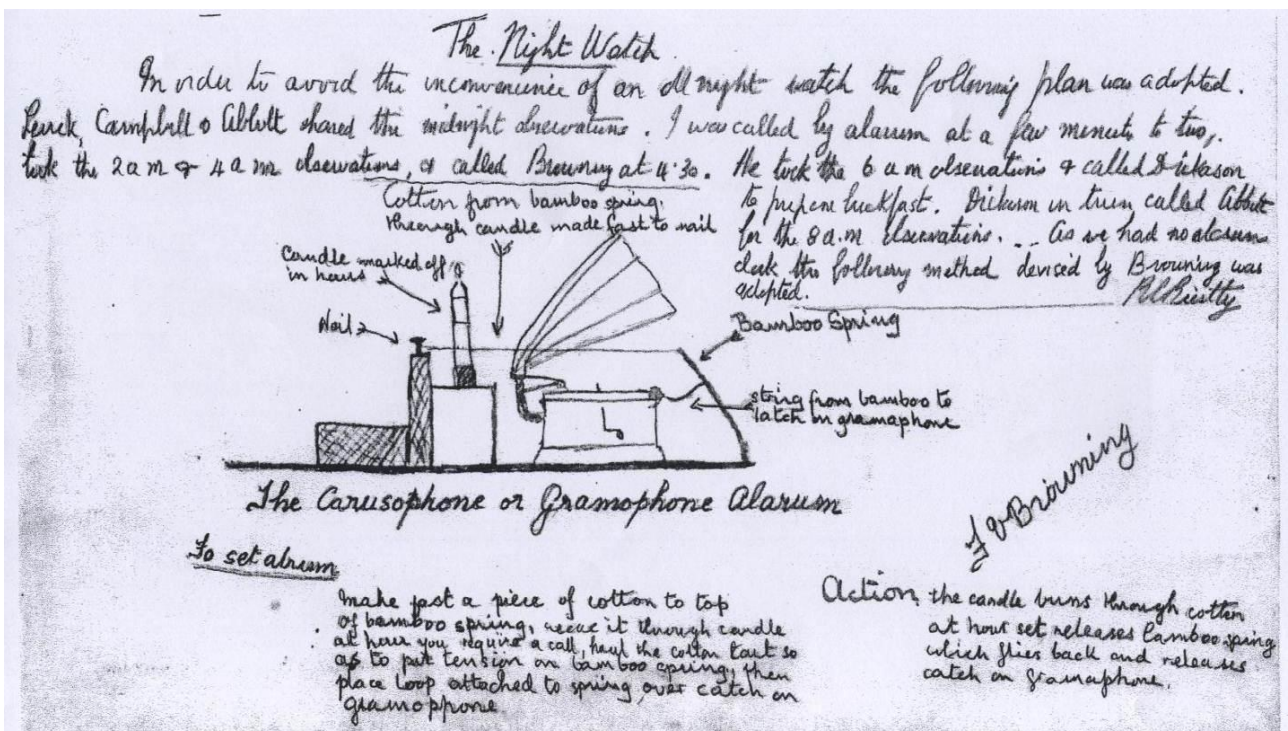 The Night Watch
In order to avoid the inconvenience of an all night watch the following plan was adopted.
Levick, Campbell & Abbott shared the midnight observations. I was called by alarum at a few minutes to two,
took the 2 am & 4 am observations, & called Browning at 4.30. He took the 6 am observations & called Dickason
to prepare breakfast. Dickason in turn called Abbott
for the 8 a.m observations. ... As we had no alarum
clock the following method devised by Browning was
adopted.
R E Priestley
Cotton from bamboo spring,
through candle made fast to nail
Candle marked off
in hours
Nail
Bamboo Spring
string from bamboo to
latch on gramaphone
The Carusophone or Gramophone Alarum
F V Browning
To set alrum
Make fast a piece of cotton to top
of bamboo spring, reeve it through candle
at hour you require a call, haul the cotton taut so
as to put tension on bamboo spring, then
place loop attached to spring, over catch on
gramopprone
Action, the candle burns through cotton
at hour set releases bamboo spring
which flies back and releases
catch on gramaphone.